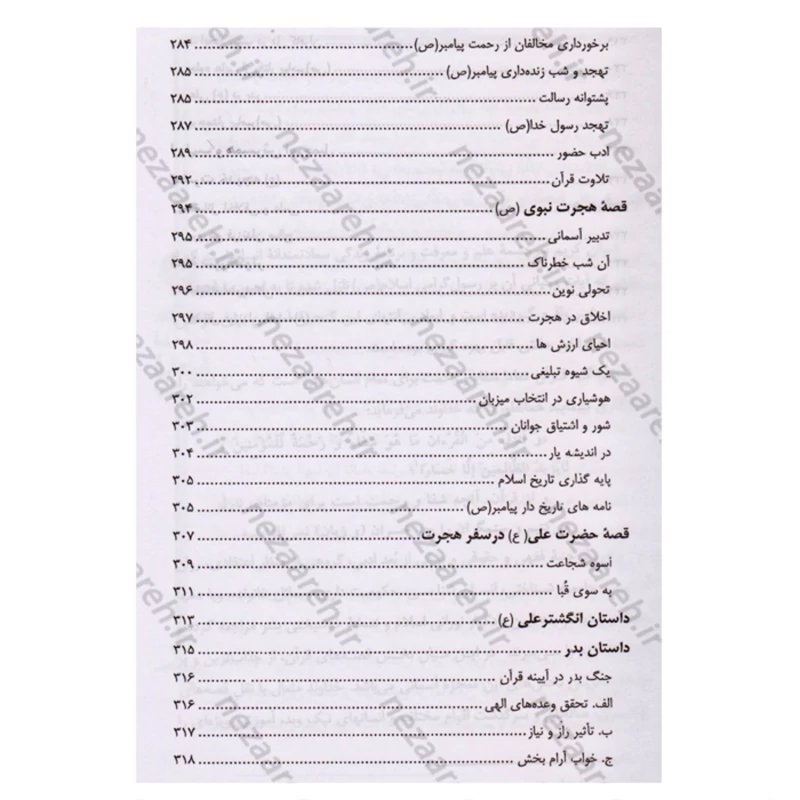 برخورداری مخالفان از رحمت پیامبر(ص)........................................ ۲۸۴
تهجد و شب زنده‌داری پیامبر(ص)........................................ ۲۸۵
پشتوانه رسالت........................................ ۲۸۵
تهجد رسول خدا(ص) ........................................ ۲۸۷
ادب حضور........................................ ۲۸۹
تلاوت قرآن........................................ ۲۹۲
قصۀ هجرت نبوی (ص)........................................ ۲۹۴
تدبیر آسمانی........................................ ۲۹۵
آن شب خطرناک........................................ ۲۹۵
تحولی نوین........................................ ۲۹۶
اخلاق در هجرت........................................ ۲۹۷
احیای ارزش ها........................................ ۲۹۸
یک شیوه تبلیغی........................................ ۳۰۰
هوشیاری در انتخاب میزبان........................................ ۳۰۲
شور و اشتیاق جوانان........................................ ۳۰۳
در اندیشه یار........................................ ۳۰۴
پایه گذاری تاریخ اسلام........................................ ۳۰۵
نامه های تاریخ دار پیامبر(ص)........................................ ۳۰۵
قصۀ حضرت علی( ع) درسفر هجرت........................................ ۳۰۷
اسوه شجاعت........................................ ۳۰۹
به سوی قُبا........................................ ۳۱۱
داستان انگشترعلی (ع)........................................ ۳۱۳
داستان بدر........................................ ۳۱۵
جنگ بدر در آیینه قرآن........................................ ۳۱۶
الف. تحقق وعده‌های الهی........................................ ۳۱۶
ب. تأثیر راز و نیاز........................................ ۳۱۷
ج. خواب آرام بخش........................................ ۳۱۸
nezaareh.ir